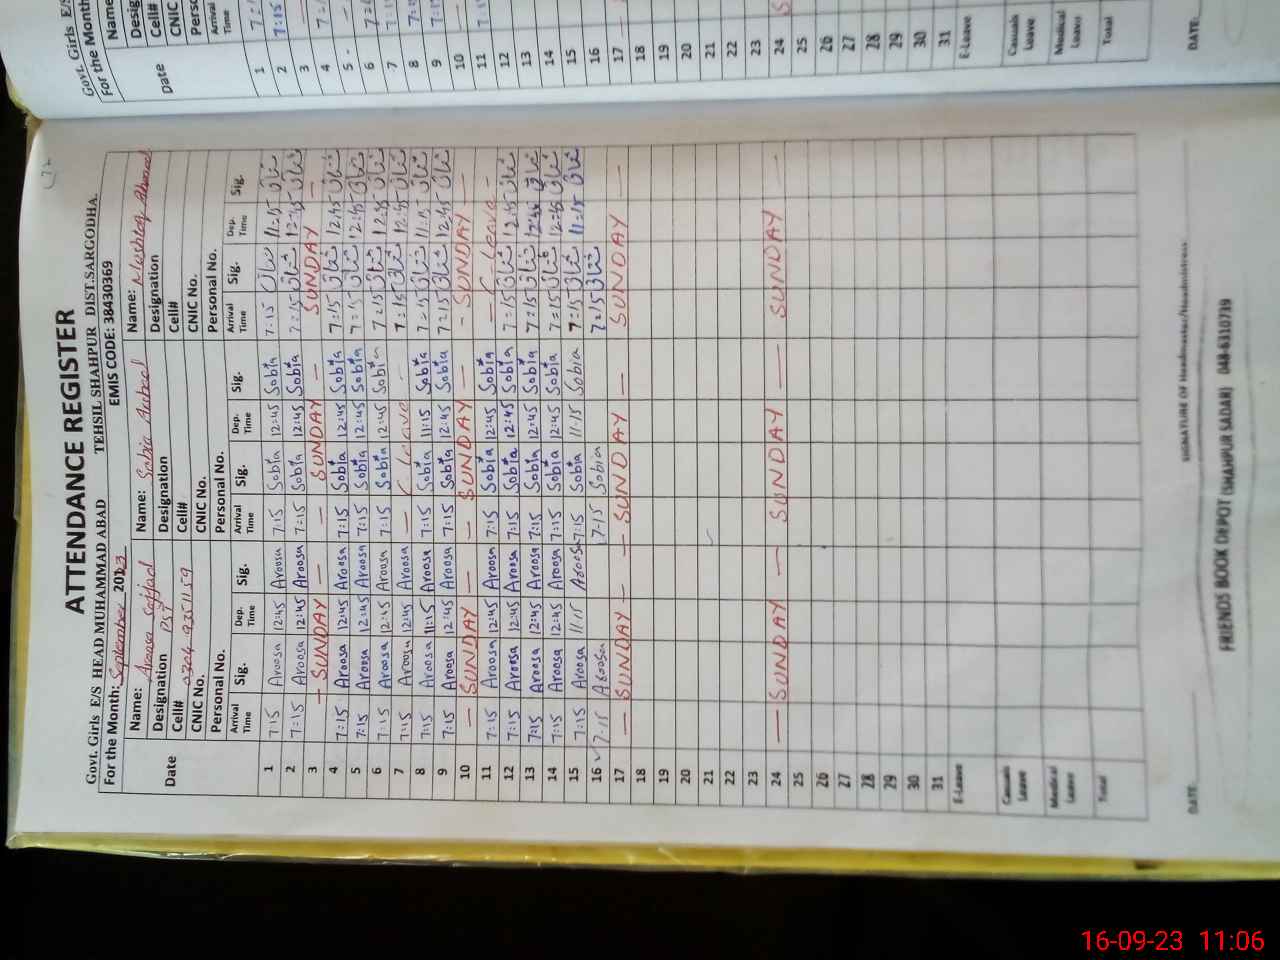 ATTENDANCE REGISTER
Govt. Girls E/S HEAD MUHAMMAD ABAD TEHSIL SHAHPUR DIST.SARGODHA.
For the Month: September 2023 EMIS CODE: 38430369
Name: Aroosa Sajjad Name: Sobia Name: Mushtaq Ahmad
Designation PST Designation Designation
Cell# 0304 9351159 Cell# Cell#
Date CNIC No. CNIC No. CNIC No.
Personal No. Personal No. Personal No.
Arrival Time Sig. Dep. Time Sig. Arrival Time Sig. Dep. Time Sig. Arrival Time Sig. Dep. Time Sig.
1 7:15 Aroosa 12:45 Aroosa 7:15 Sobia 12:45 Sobia 7:15 11:15
2 7:15 Aroosa 12:45 Aroosa 7:15 Sobia 12:45 Sobia 7:15 12:45
3 — SUNDAY — — SUNDAY — SUNDAY —
4 7:15 Aroosa 12:45 Aroosa 7:15 Sobia 12:45 Sobia 7:15 12:45
5 7:15 Aroosa 12:45 Aroosa 7:15 Sobia 12:45 Sobia 7:15 12:45
6 7:15 Aroosa 12:45 Aroosa 7:15 Sobia 12:45 Sobia 7:15 12:45
7 7:15 Aroosa 12:45 Aroosa — C. Leave 7:15 12:45
8 7:15 Aroosa 11:15 Aroosa 7:15 Sobia 11:15 Sobia 7:15 11:15
9 7:15 Aroosa 12:45 Aroosa 7:15 Sobia 12:45 Sobia 7:15 12:45
10 — SUNDAY — — SUNDAY — - SUNDAY —
11 7:15 Aroosa 12:45 Aroosa 7:15 Sobia 12:45 Sobia — C. Leave -
12 7:15 Aroosa 12:45 Aroosa 7:15 Sobia 12:45 Sobia 7:15 12:45
13 7:15 Aroosa 12:45 Aroosa 7:15 Sobia 12:45 Sobia 7:15 12:45
14 7:15 Aroosa 12:45 Aroosa 7:15 Sobia 12:45 Sobia 7:15 12:45
15 7:15 Aroosa 11:15 Aroosa 7:15 Sobia 11:15 Sobia 7:15 11:15
16 7:15 Aroosa 7:15 Sobia 7:15
17 — SUNDAY — — SUNDAY — SUNDAY —
18
19
20
21
22
23
24 — SUNDAY — SUNDAY — SUNDAY —
25
26
27
28
29
30
31
E-Leave
Casuals Leave
Medical Leave
Total
DATE: SIGNATURE OF Headmaster/Headmistress
FRIENDS BOOK DEPOT (SHAHPUR SADAR) 048-6310739
Govt. Girls E/S
For the Month
Name
Desig
Cell#
Date CNIC
Perso
Arrival Time
1
2 7:15
3
4
5
6
7
8
9
10
11
12
13
14
15
16
17
18
19
20
21
22
23
24
25
26
27
28
29
30
31
E-Leave
Casuals Leave
Medical Leave
Total
DATE:
16-09-23 11:06